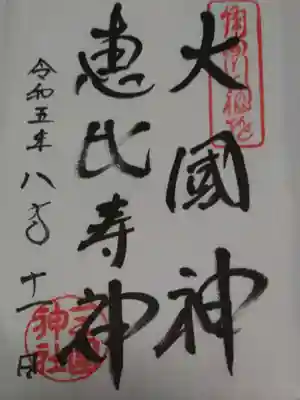 大國神
恵比寿神
令和五年八月十一日
神社